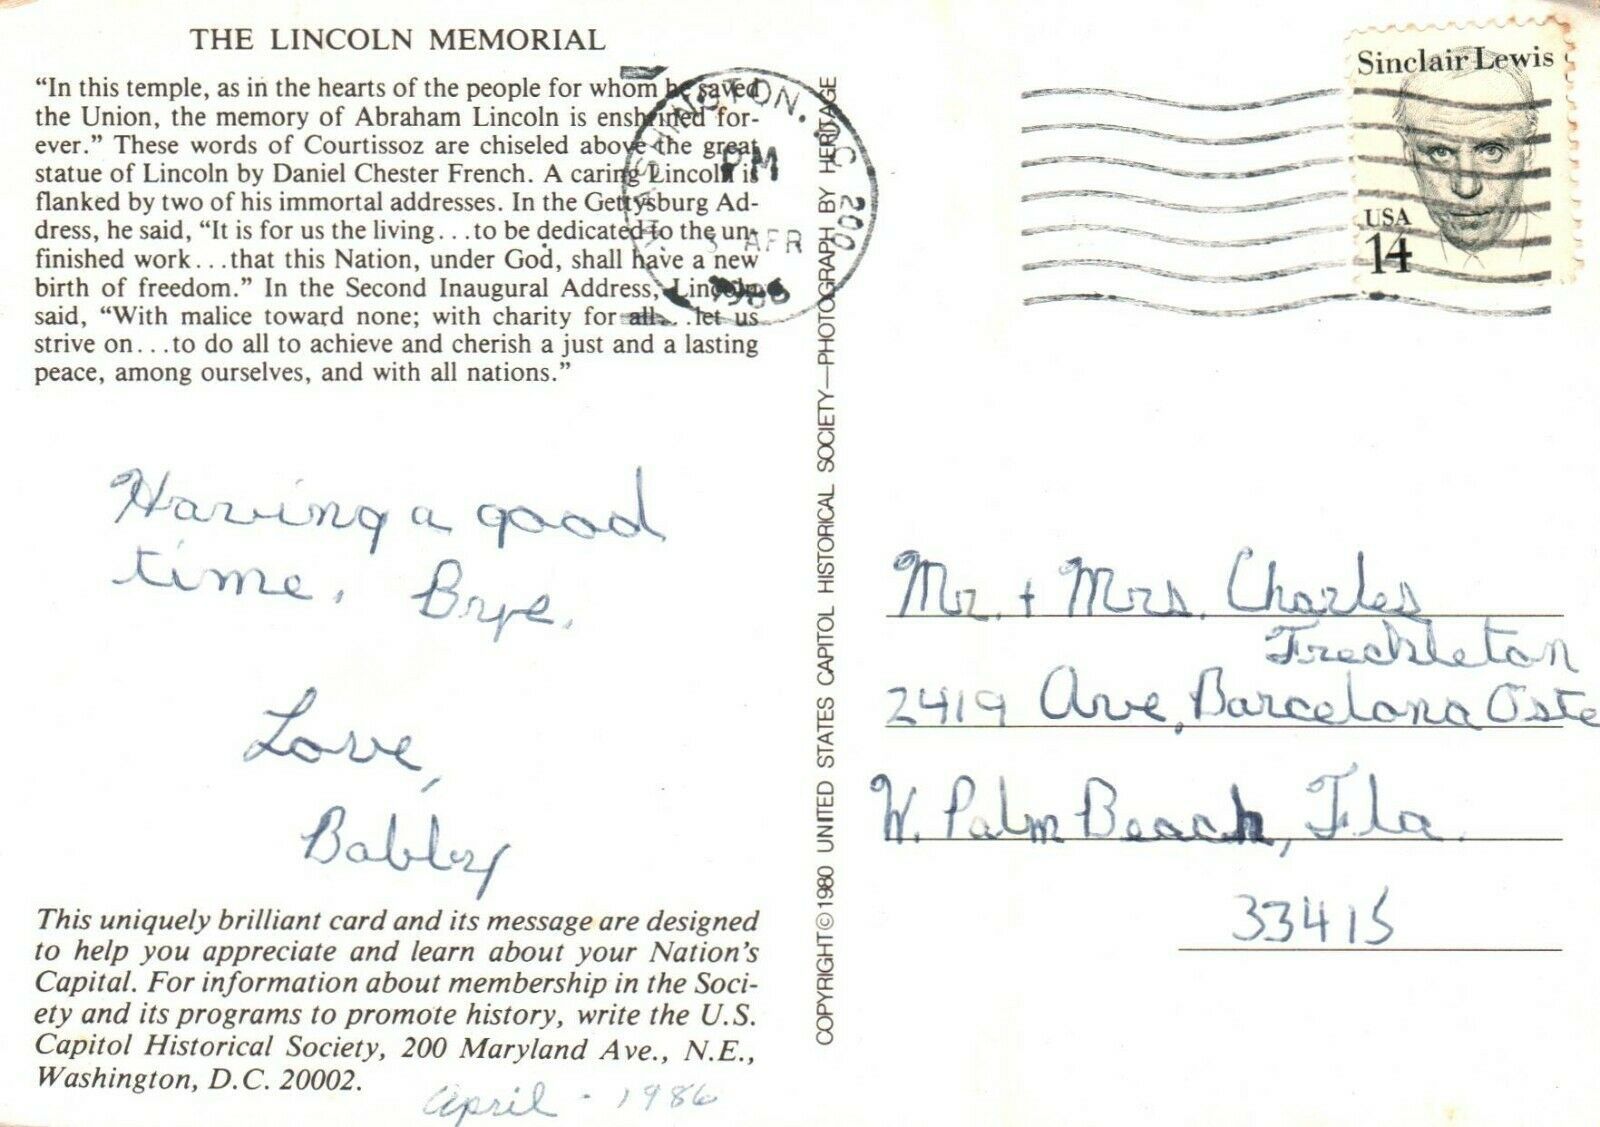 THE LINCOLN MEMORIAL
“In this temple, as in the hearts of the people for whom he saved
the Union, the memory of Abraham Lincoln is enshrined for-
ever.” These words of Courtissoz are chiseled above the great
statue of Lincoln by Daniel Chester French. A caring Lincoln is
flanked by two of his immortal addresses. In the Gettysburg Ad-
dress, he said, “It is for us the living...to be dedicated to the un-
finished work...that this Nation, under God, shall have a new
birth of freedom.” In the Second Inaugural Address, Lincoln
said, “With malice toward none; with charity for all...let us
strive on...to do all to achieve and cherish a just and a lasting
peace, among ourselves, and with all nations.”
Having a good
time. Bye.
Love,
Bobby
This uniquely brilliant card and its message are designed
to help you appreciate and learn about your Nation’s
Capital. For information about membership in the Soci-
ety and its programs to promote history, write the U.S.
Capitol Historical Society, 200 Maryland Ave., N.E.,
Washington, D.C. 20002.
April - 1986
COPYRIGHT © 1980 UNITED STATES CAPITOL HISTORICAL SOCIETY—PHOTOGRAPH BY HERITAGE
WASHINGTON, DC 200
PM
APR
1986
Sinclair Lewis
USA
14
Mr. + Mrs. Charles
Freckleton
2419 Ave, Barcelona Oste
W. Palm Beach, Fla.
33415